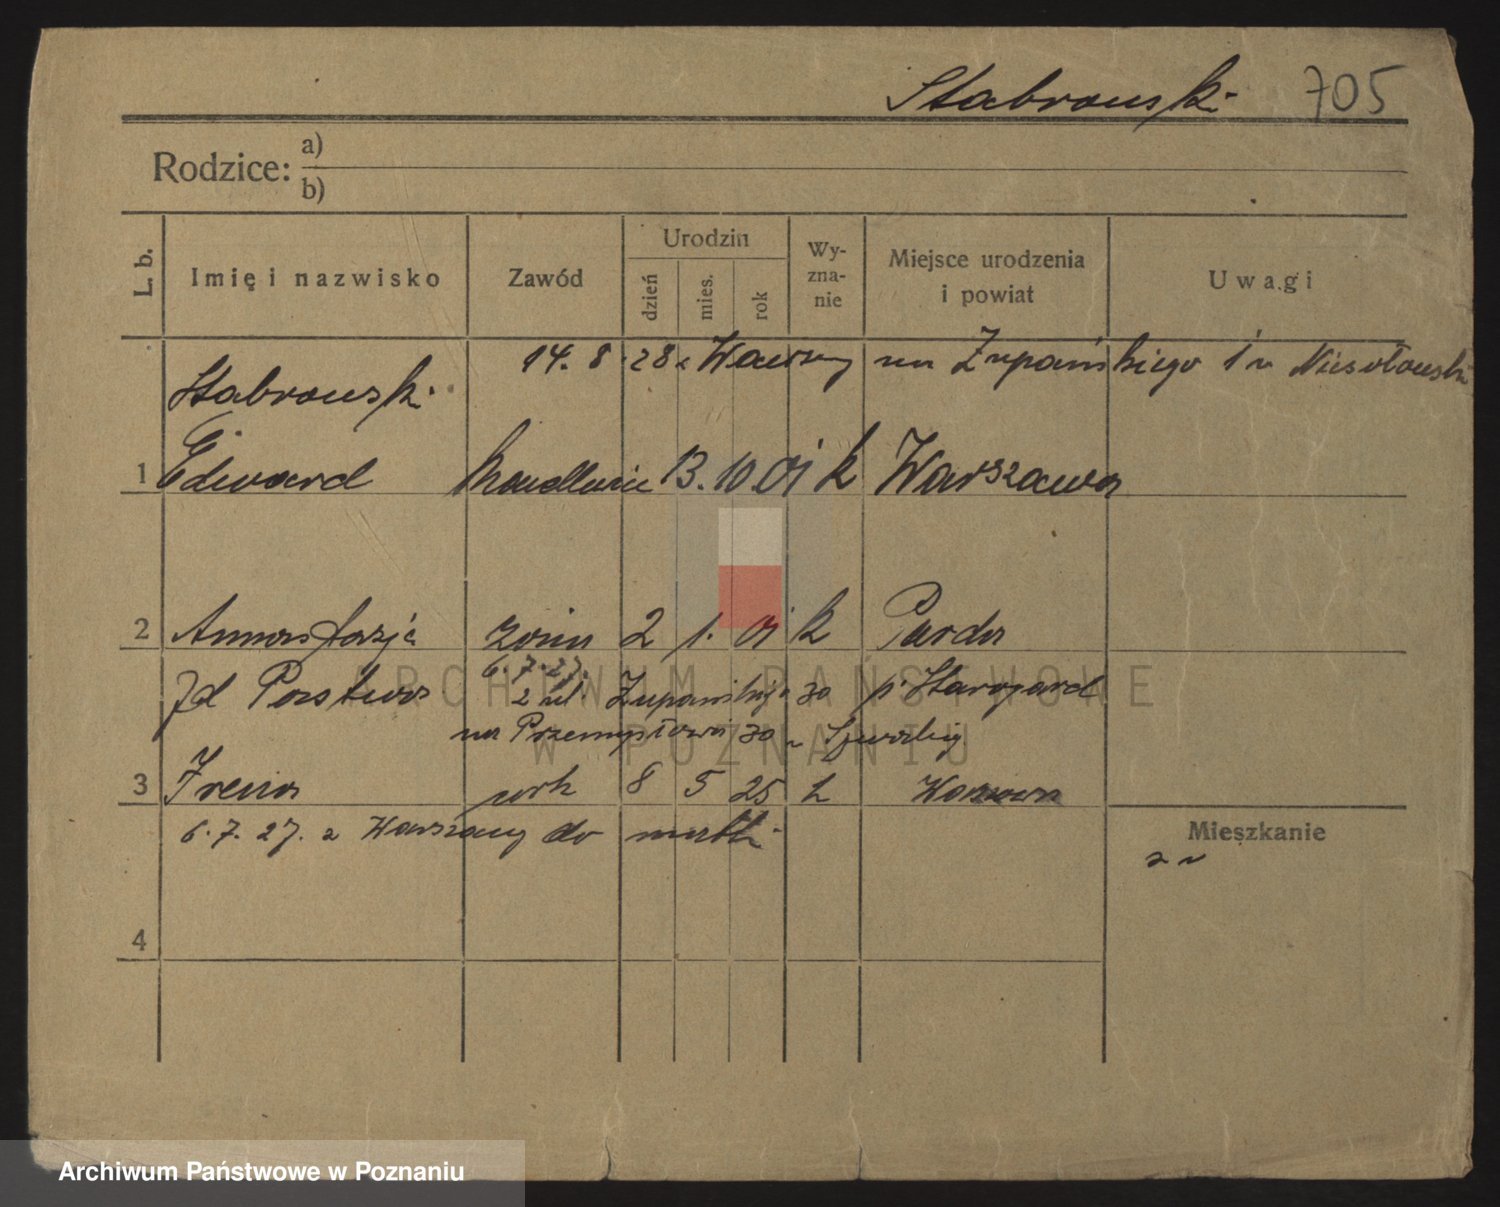 Stabrowski 705
Rodzice: a)
b)
L. b. Imię i nazwisko Zawód Urodzin dzień mies. rok Wy-zna-nie Miejsce urodzenia i powiat Uwagi
14. 8. 28 z Warszawy na Żupańskiego 1 u
Stabrowski
1 Edward 13. 10. 01 k Warszawa
2 Anastazja żona 2 1. 01 k Parda
6. 7. 27.
z ul. Żupańskiego 30 p. Starogard
na Przemysłową 30 u
3 Irena 8 5 25 k
6. 7. 27. z Warszawy do matki
Mieszkanie
4
ARCHIWUM PAŃSTWOWE
W POZNANIU
Archiwum Państwowe w Poznaniu